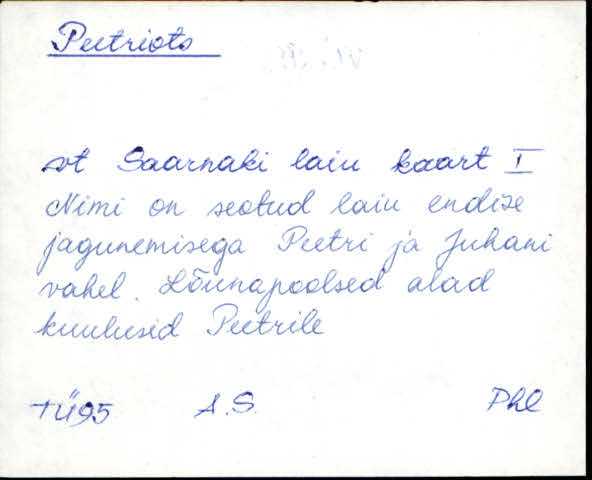 Peetriots
vt Saarnaki laiu kaart I
Nimi on seotud laiu endise
jagunemisega Peetri ja Juhani
vahel. Lõunapoolsed alad
kuulusid Peetrile
TÜ95 A.S. Phl